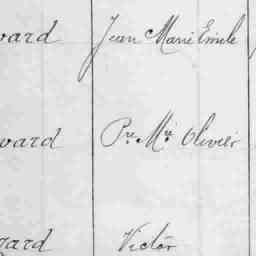 vard Jean Marie Emile
vard Pre. Mie. Olivier
gard Victor